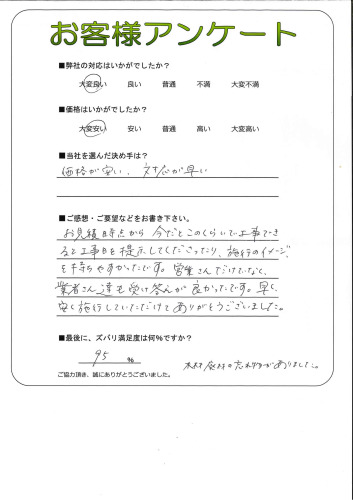 お客様アンケート
■弊社の対応はいかがでしたか？
大変良い 良い 普通 不満 大変不満
■価格はいかがでしたか？
大変安い 安い 普通 高い 大変高い
■当社を選んだ決め手は？
価格が安い、対応が早い
■ご感想・ご要望などをお書き下さい。
お見積時点から今だとこのくらいで工事でき
ると工事日を提示してくださったり、施行のイメージ
を持ちやすかったです。営業さんだけでなく、
業者さん達も受け答えが良かったです。早く、
安く施行していただけてありがとうございました。
■最後に、ズバリ満足度は何％ですか？
95 ％
木材廃材の忘れ物がありました。
ご協力頂き、誠にありがとうございました。